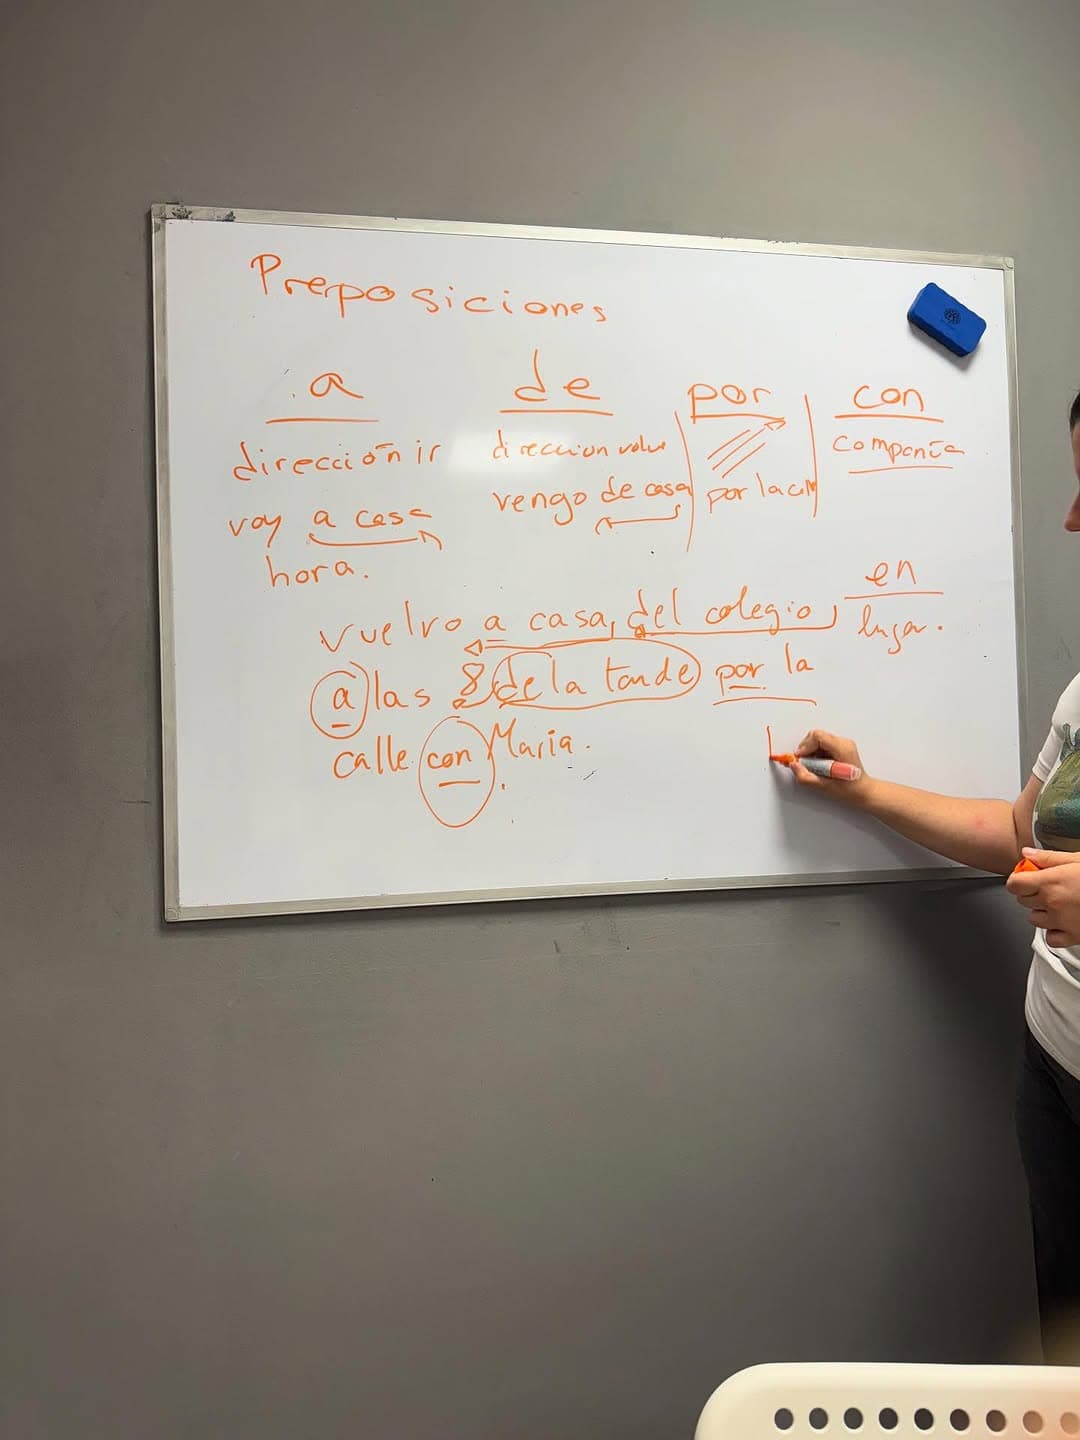 Preposiciones
a
dirección ir
voy a casa
hora.
de
direccion volve
vengo de casa
por
por la
con
compañía
en
lugar.
vuelvo a casa, del colegio,
a las 8 de la tarde por la
calle con Maria.